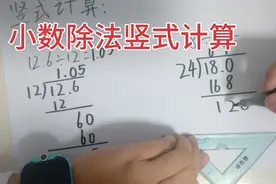 竖式计算:
小数除法竖式计算
12.6÷12=1.05
1.05
12)12.6
12
60
60
24)18.0
168
120